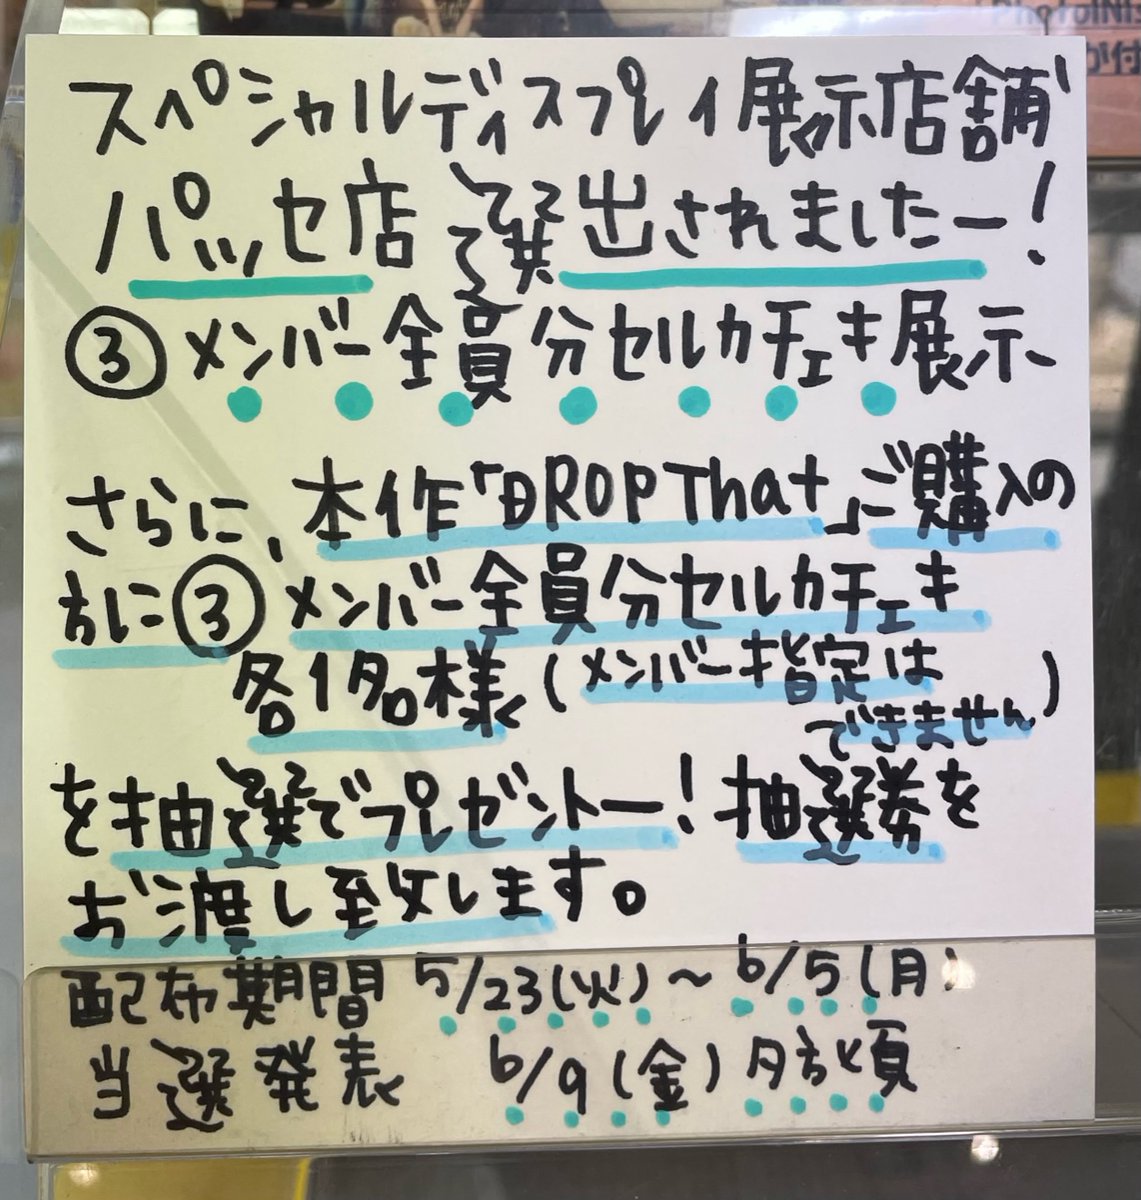 PhotoINI
が付
スペシャルディスプレイ展示店舗
パッセ店 選出されましたー!
③メンバー全員分セルカチェキ展示
さらに、本作「DROP That」ご購入の
方に③メンバー全員分セルカチェキ
各1名様(メンバー指定は
できません)
を抽選でプレゼントー!抽選券を
お渡し致します。
配布期間 5/23(火)~6/5(月)
当選発表 6/9(金)夕方頃